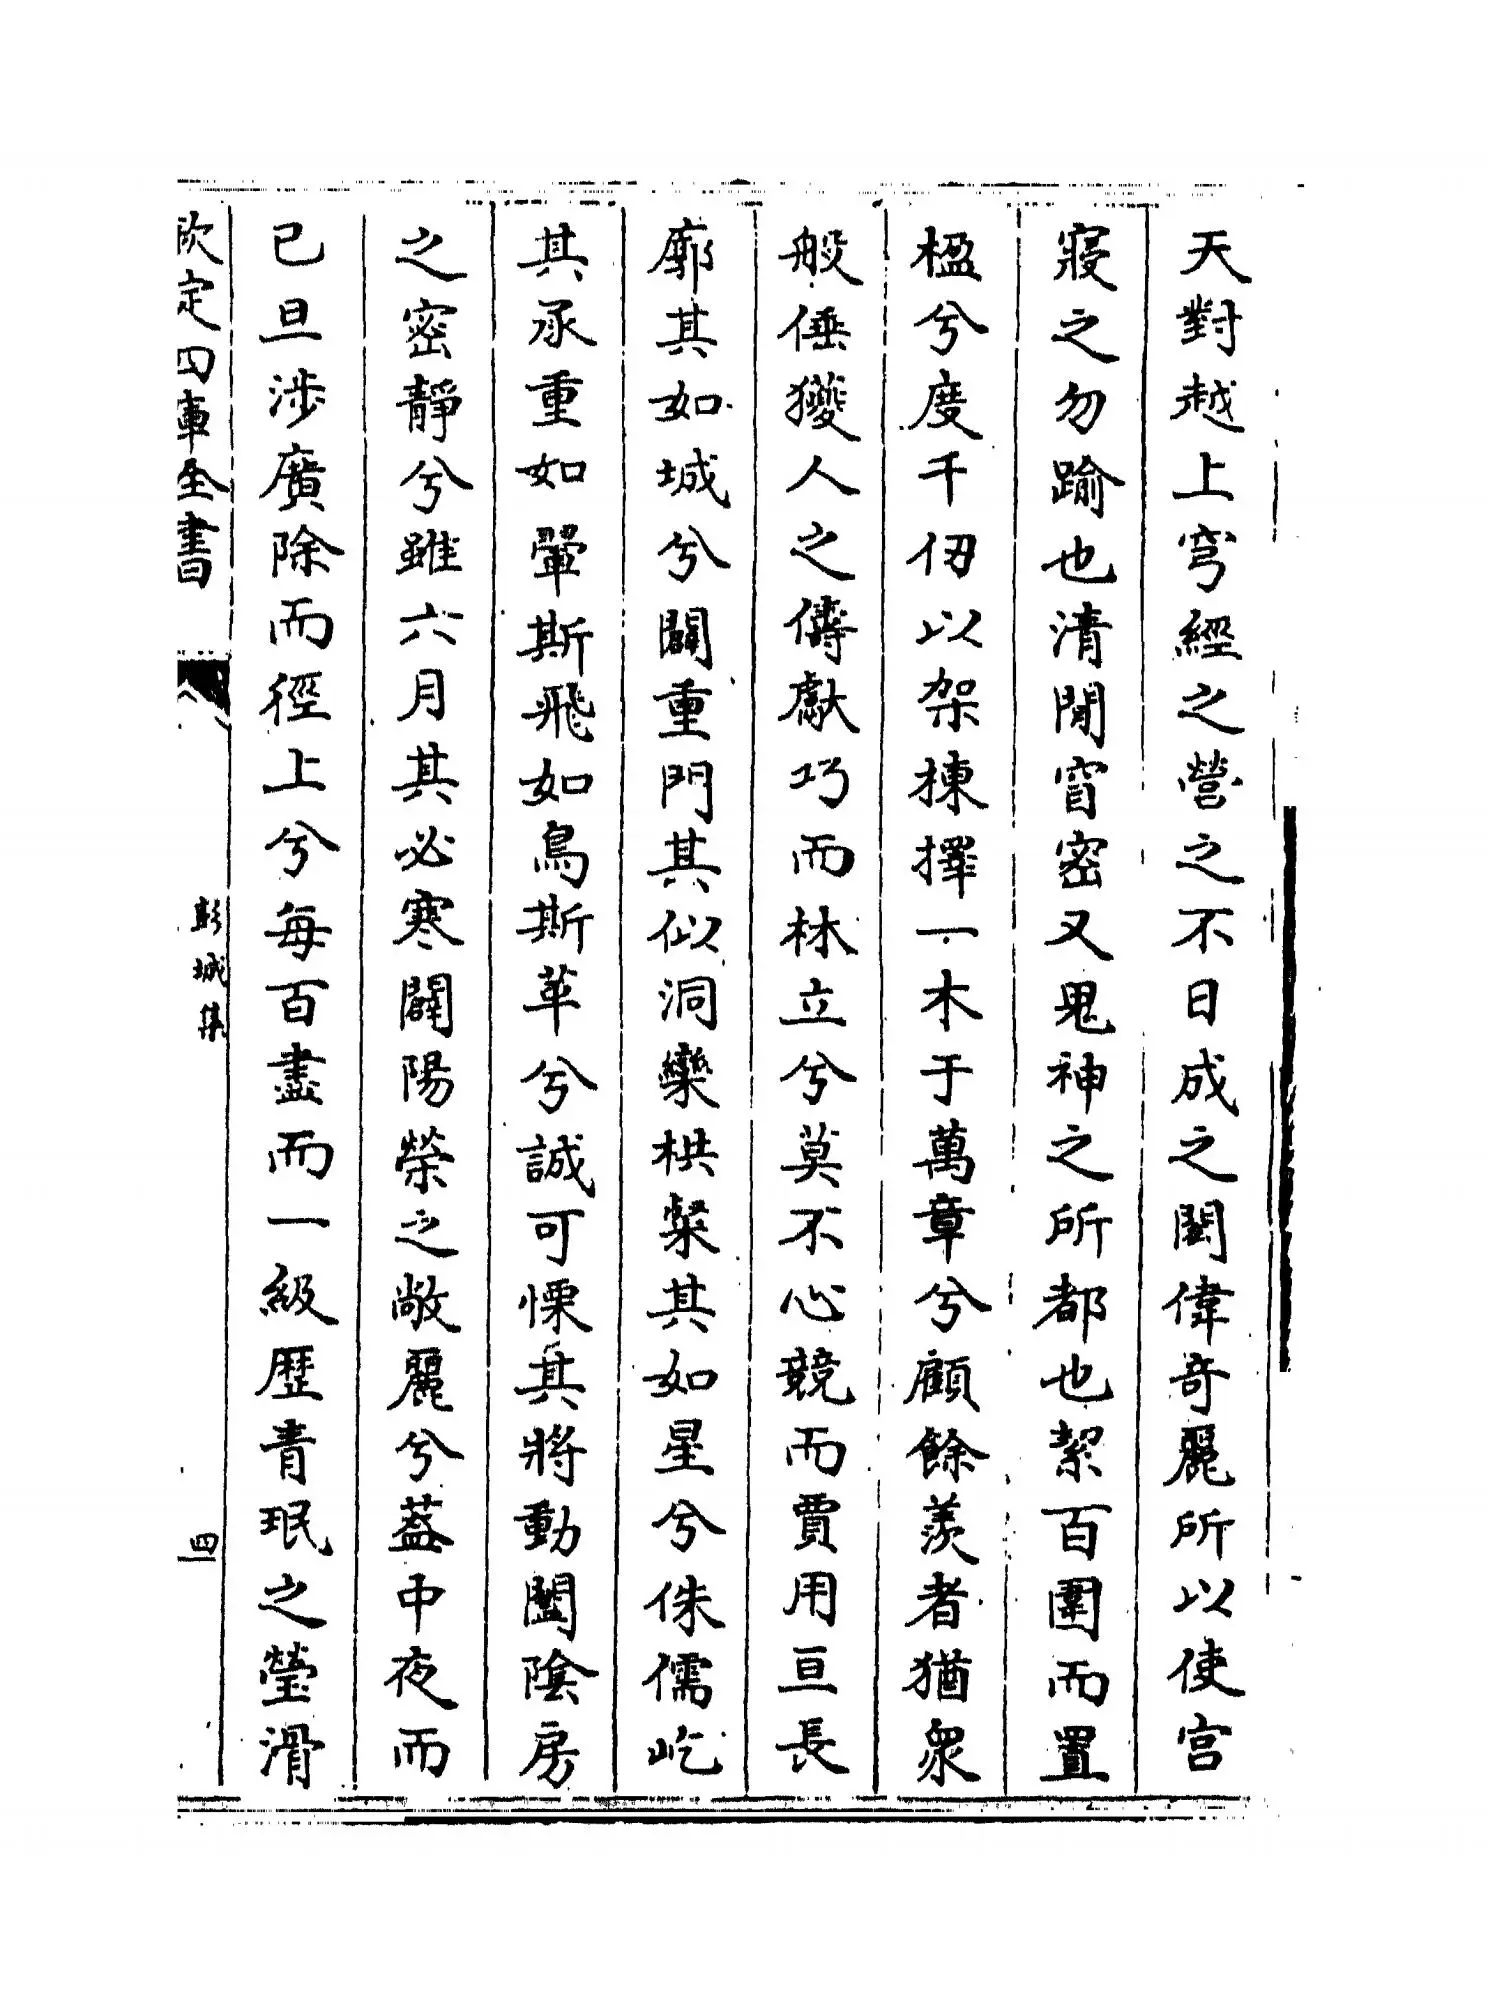 天對越上穹經之營之不日成之閎偉奇麗所以使宫
寢之勿踰也清閒窅密又鬼神之所都也絜百圍而置
楹兮度千仞以架棟擇一木于萬章兮顧餘羨者猶衆
般倕獿人之儔獻巧而林立兮莫不心競而賈用亘長
廊其如城兮闢重門其似洞欒栱粲其如星兮侏儒屹
其承重如翬斯飛如鳥斯革兮誠可慄其將動闔陰房
之密靜兮雖六月其必寒闢陽榮之敞麗兮葢中夜而
已旦涉廣除而徑上兮每百盡而一級歴青珉之瑩滑
欽定四庫全書
彭城集
四